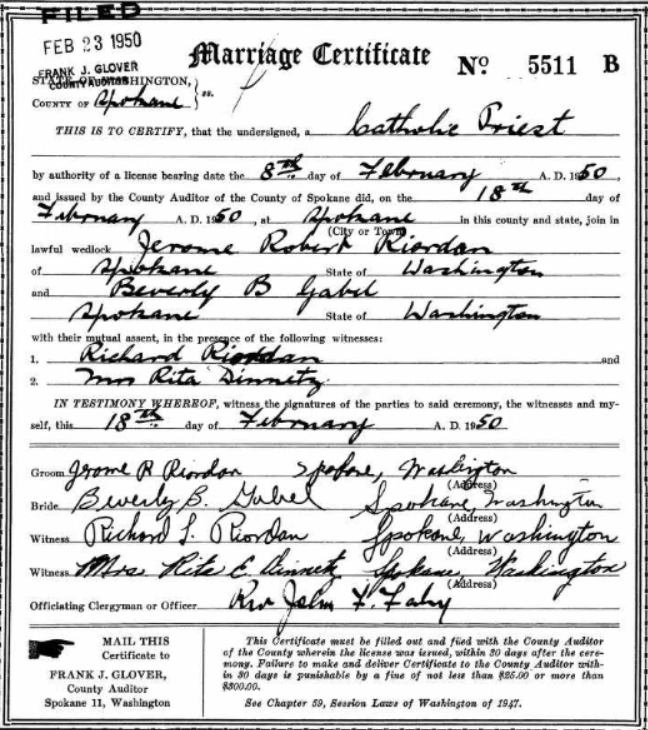 FILED
FEB 23 1950
FRANK J. GLOVER
COUNTY AUDITOR
Marriage Certificate No 5511 B
STATE OF WASHINGTON,
COUNTY OF Spokane } ss.
THIS IS TO CERTIFY, that the undersigned, a Catholic Priest
by authority of a license bearing date the 8th day of February A. D. 1950,
and issued by the County Auditor of the County of Spokane did, on the 18th day of
February A. D. 1950, at Spokane in this county and state, join in
(City or Town)
lawful wedlock Jerome Robert Riordan
of Spokane State of Washington
and Beverly B Gabel
Spokane State of Washington
with their mutual assent, in the presence of the following witnesses:
1. Richard Riordan and
2. Mrs Rita Dinnetz
IN TESTIMONY WHEREOF, witness the signatures of the parties to said ceremony, the witnesses and my-
self, this 18th day of February A. D. 1950
Groom Jerome R Riordan Spokane, Washington
(Address)
Bride Beverly B. Gabel Spokane, Washington
(Address)
Witness Richard L. Riordan Spokane, Washington
(Address)
Witness Mrs Rita E. Dinnetz Spokane, Washington
(Address)
Officiating Clergyman or Officer Rev John F. Fahy
MAIL THIS
Certificate to
FRANK J. GLOVER,
County Auditor
Spokane 11, Washington
This Certificate must be filled out and filed with the County Auditor
of the County wherein the license was issued, within 30 days after the cere-
mony. Failure to make and deliver Certificate to the County Auditor with-
in 30 days is punishable by a fine of not less than $25.00 or more than
$300.00.
See Chapter 59, Session Laws of Washington of 1947.